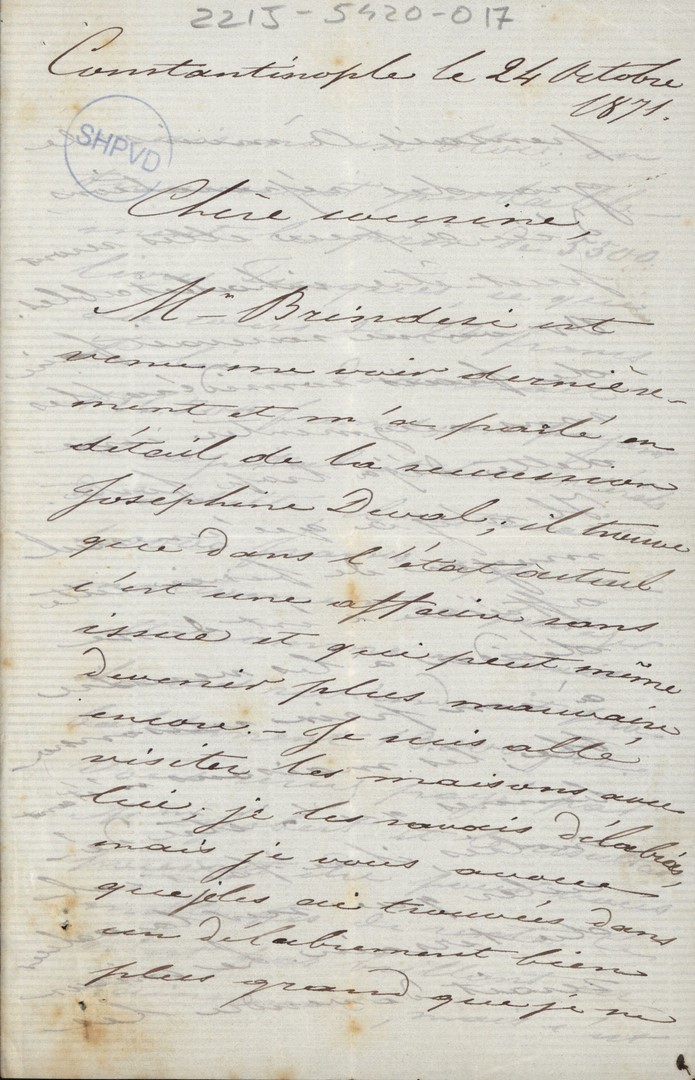 2215-5420-017
Constantinople le 24 Octobre
1871.
SHPVD
Chère cousine,
Mr Brinderi est
venu me voir dernière-
ment et m'a parlé en
détail de la succession
Joséphine Duval; il trouve
que dans l'état actuel
c'est une affaire sans
issue et qui peut même
devenir plus mauvaise
encore. - Je suis allé
visiter les maisons avec
lui; je les savais délabrées,
mais je vous avoue
que je les ai trouvées dans
un délabrement bien
plus grand que je ne